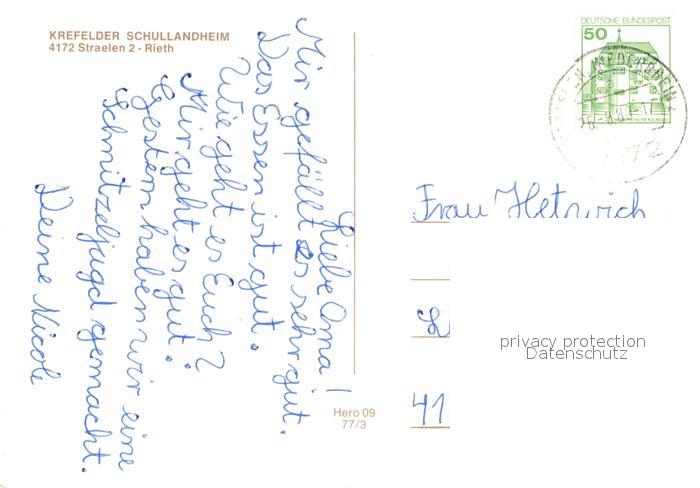 KREFELDER SCHULLANDHEIM
4172 Straelen 2 - Rieth
Liebe Oma!
Mir gefällt es sehr gut.
Das Essen ist gut.
Wie geht es Euch?
Mir geht es gut.
Gestern haben wir eine
Schnitzeljagd gemacht.
Deine Nicole
Hero 09
77/3
DEUTSCHE BUNDESPOST
50
4172
Frau
41
privacy protection
Datenschutz